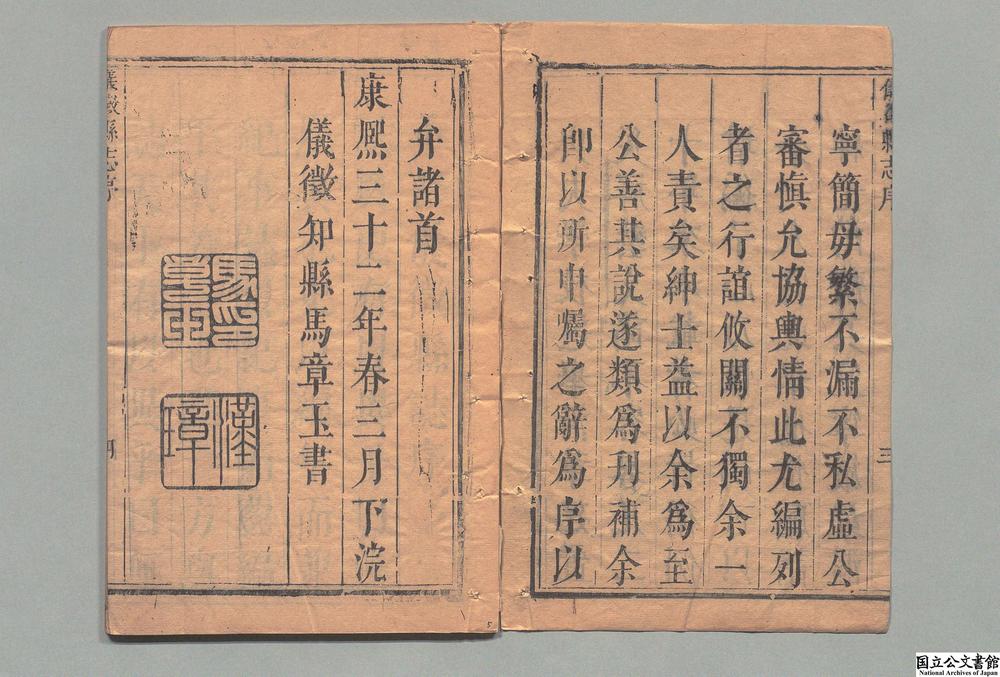 儀徵縣志序
三
寧簡毋繁不漏不私虛公
審愼允協輿情此尤編列
者之行誼攸關不獨余一
人責矣紳士益以余爲至
公善其說遂類爲刋補余
即以所申囑之辭爲序以
弁諸首
康熙三十二年春三月下浣
儀徵知縣馬章玉書
漢璋
儀徵縣志序
四
5
国立公文書館
National Archives of Japan